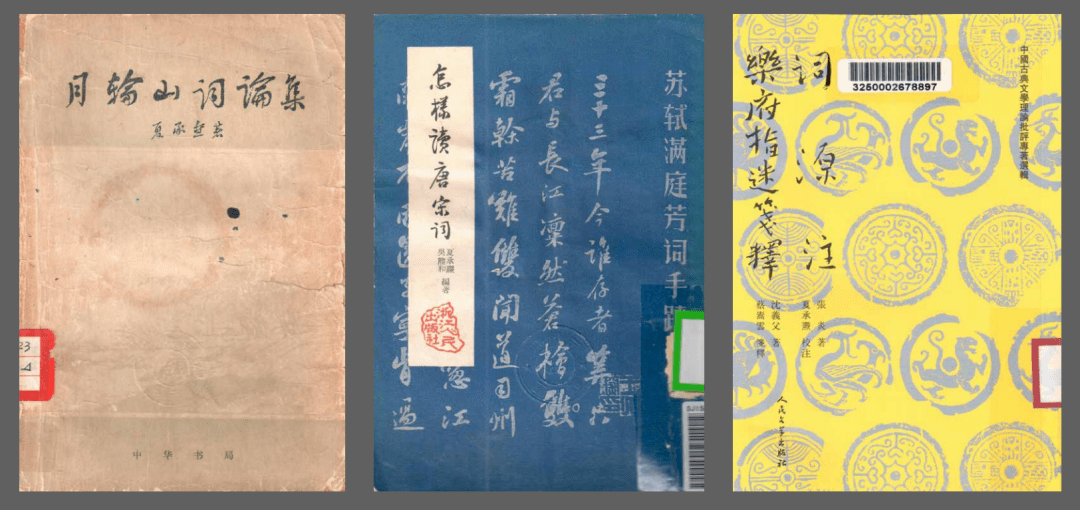 月輪山词論集
夏承焘著
中华书局
怎樣讀唐宋词
夏承燾
吳熊和 編著
苏轼满庭芳词手蹟
三十三年今谁存者算只
君与長江凜然蒼檜
霜幹苦難雙聞道司州
江
過
中國古典文學理論批評專著選輯
3250002678897
词源注
樂府指迷箋釋
張炎著
夏承燾校注
沈義父著
蔡嵩雲箋釋
人民文学出版社